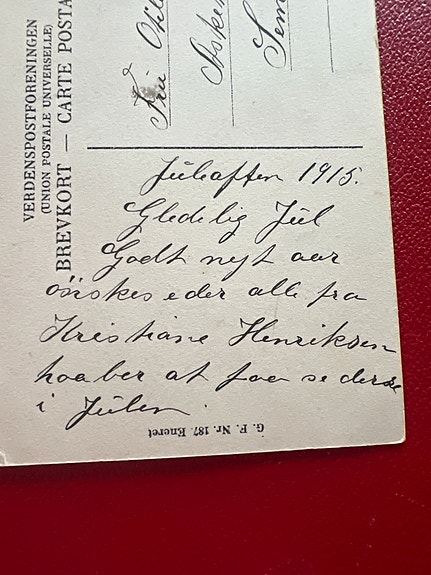 VERDENSPOSTFORENINGEN
(UNION POSTALE UNIVERSELLE)
BREVKORT — CARTE POSTA
Frü
Juleaften 1915.
Gledelig Jül
Godt nyt aar
önskes eder alle fra
Kristiane Henriksen
haaber at faa se derse
i Jülen.
G. F. Nr. 187. Eneret